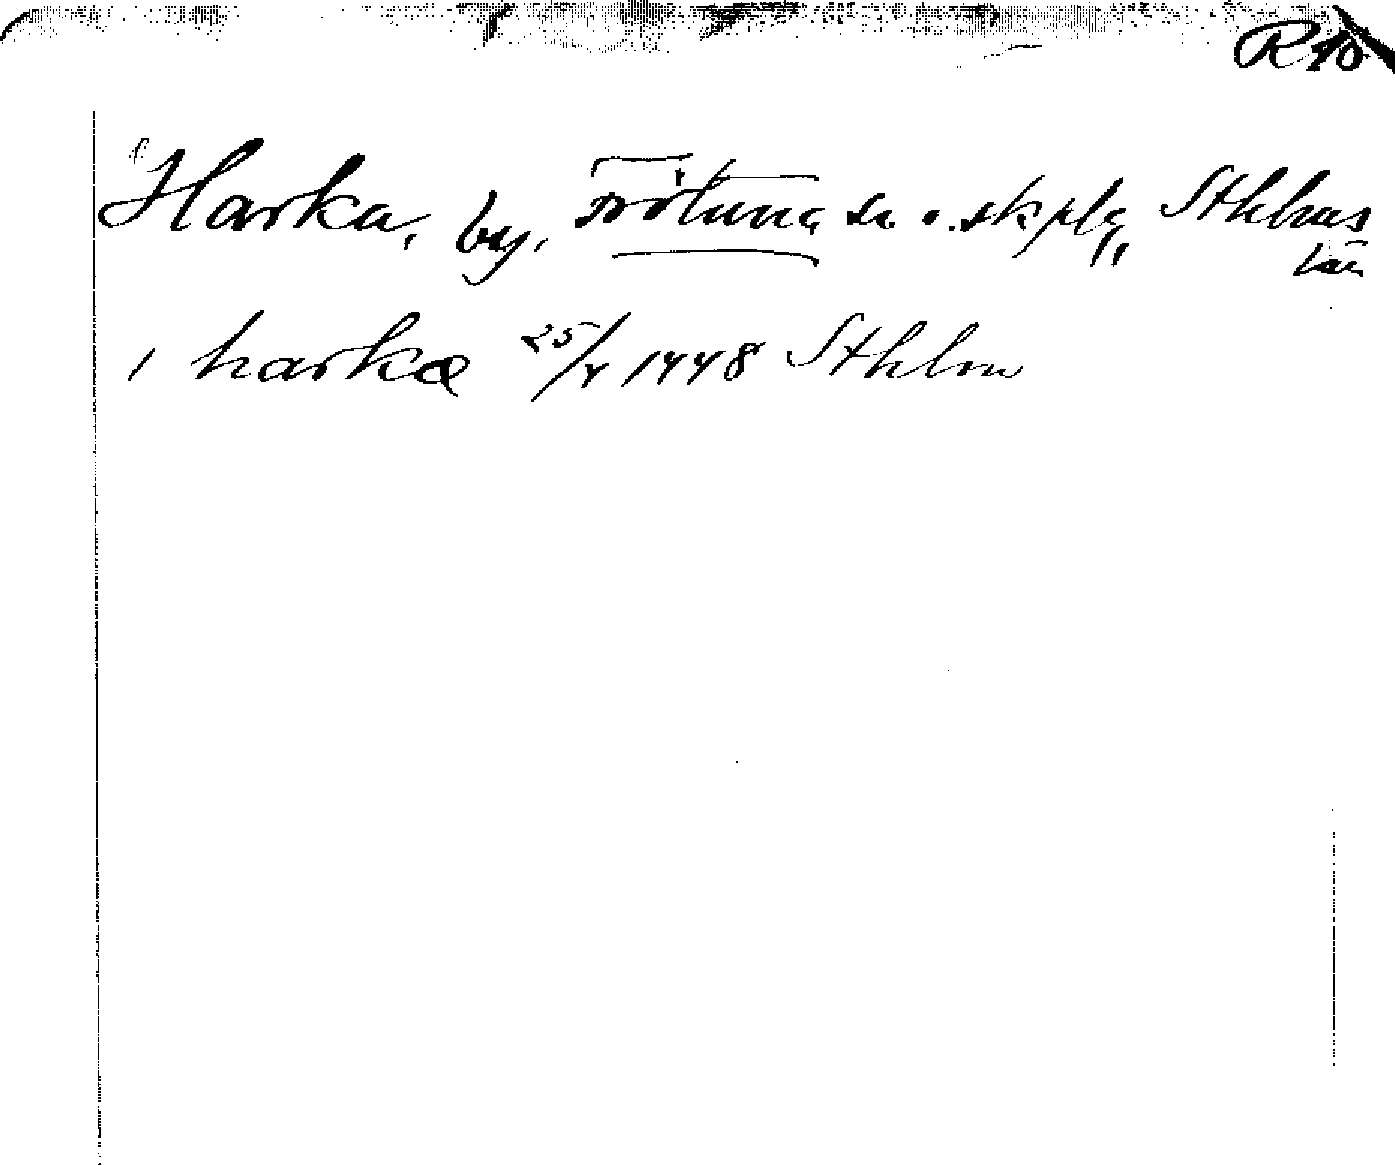 R 10
Harka, by, Frötuna sn o. skplg, Sthlms
län
i harkæ 25/4 1448 Sthlm